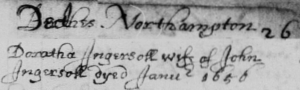 Deathes Northampton 26
Doratha Ingersoll wife of John
Ingersoll dyed Janur 1656